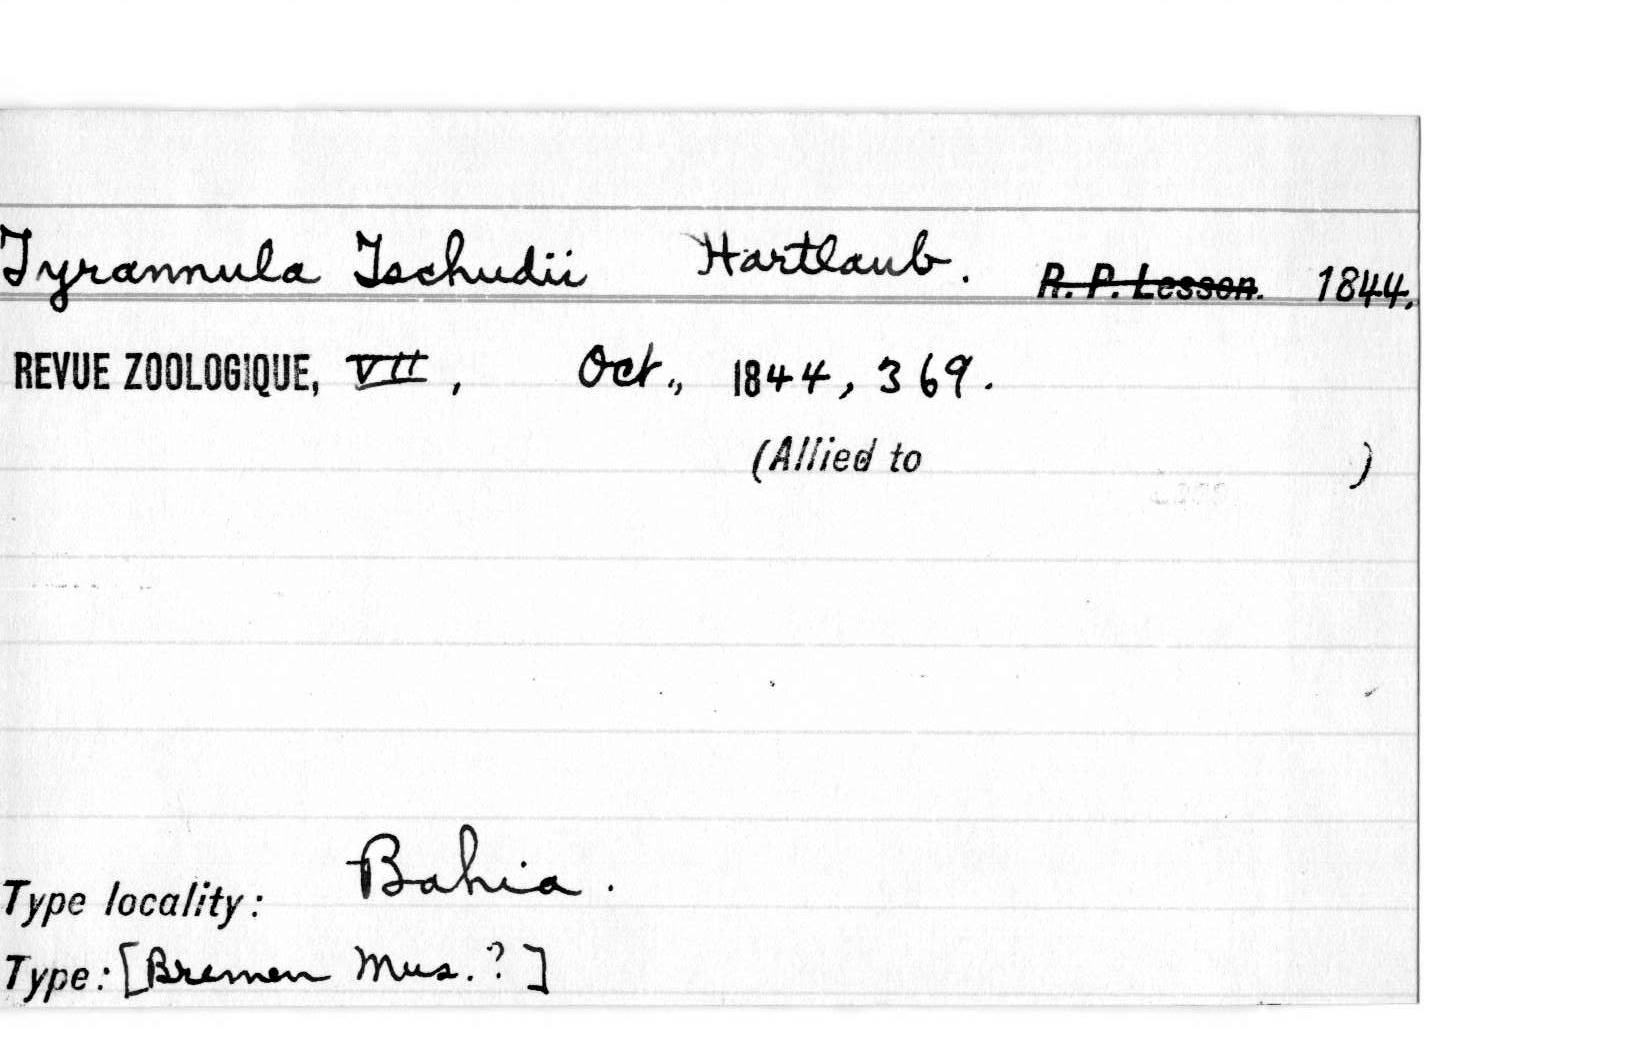 Tyrannula Tschudii Hartlaub. R. P. Lesson. 1844.
REVUE ZOOLOGIQUE, VII, Oct., 1844, 369.
(Allied to )
Type locality: Bahia.
Type: [Bremen Mus.?]